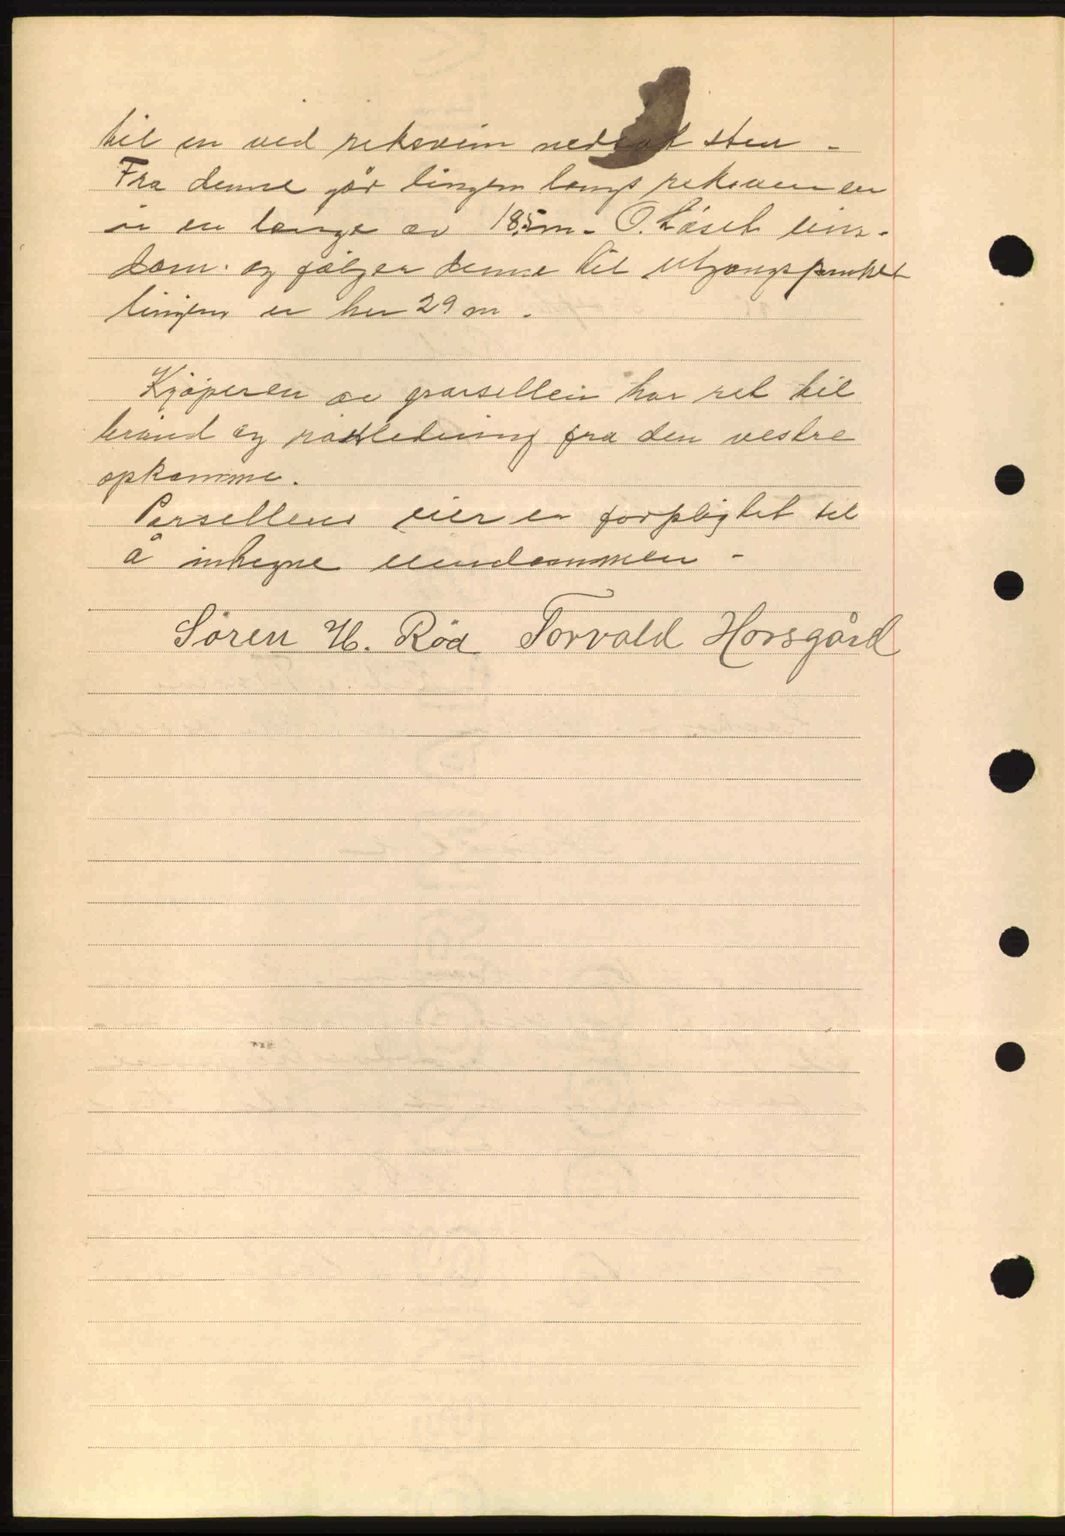 til en ved riksveien nedsat sten -
Fra denne går lingen langs riksveien
i en lenge av 18,5 m - O. Låset ein-
dom. og følger denne til utgangspunket
lingen er her 29 m.
Kjøperen av parsellen har ret til
brønd og rørledning fra den vestre
opkomme.
Parsellens eier er forpligtet til
å inhegne eiendommen -
Søren H. Rød Torvald Horsgård